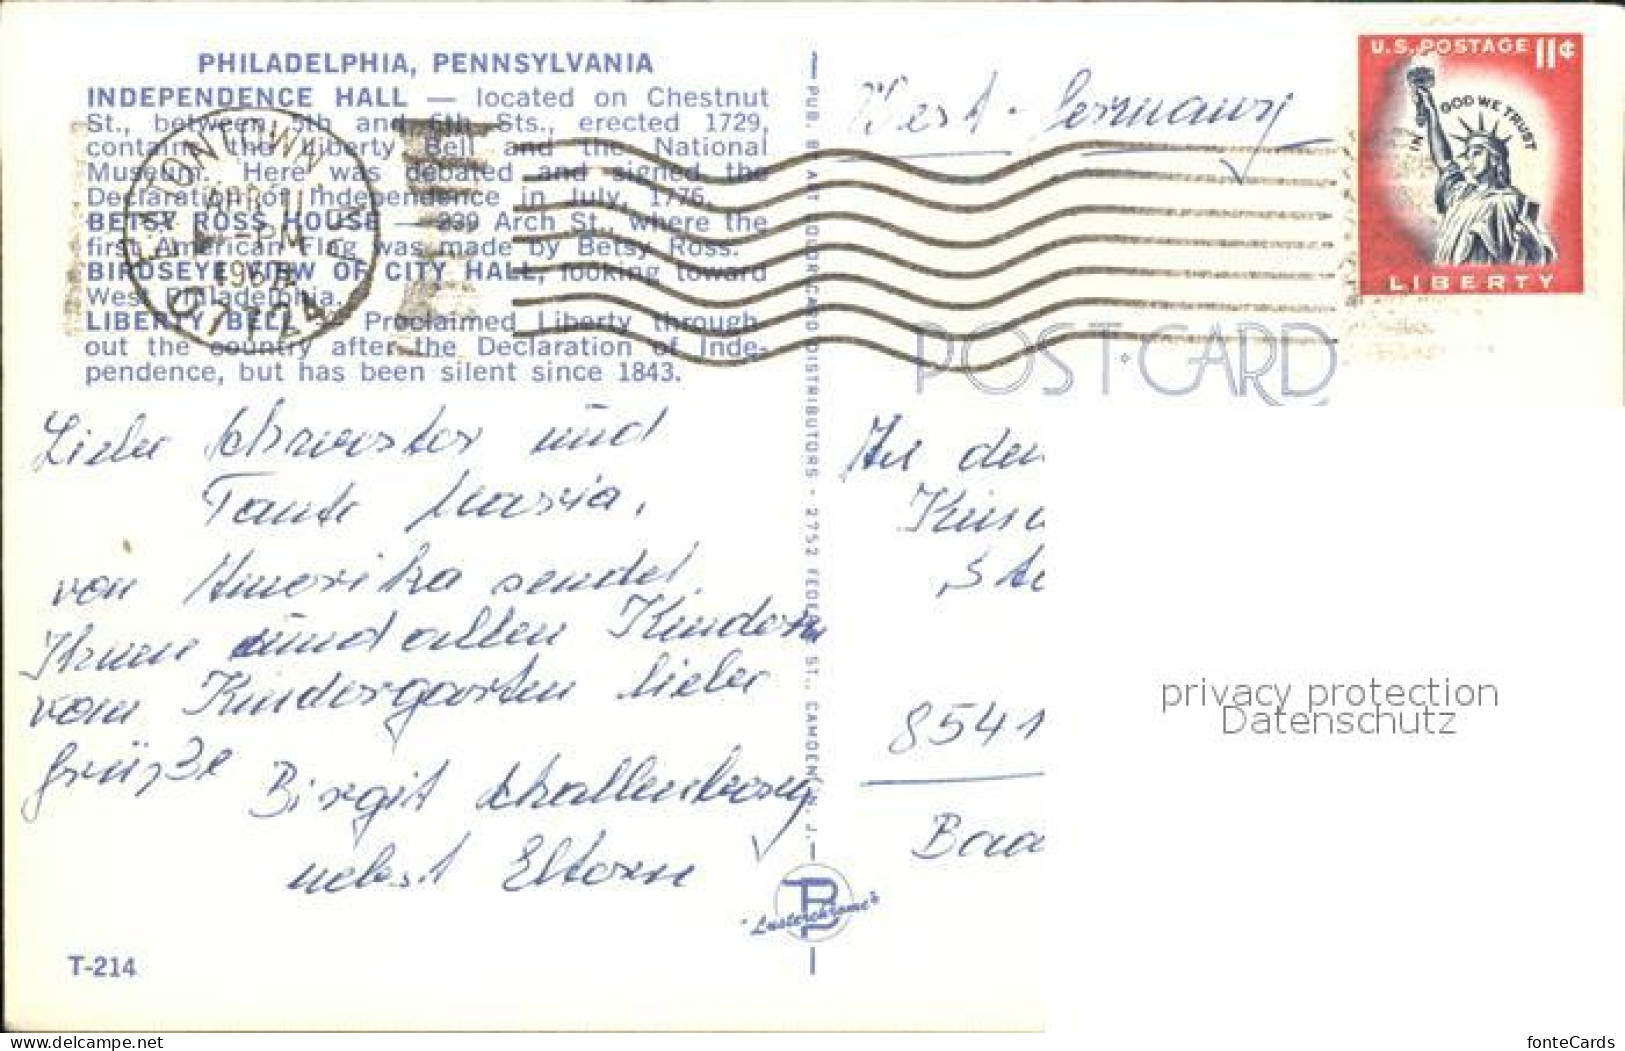 PHILADELPHIA, PENNSYLVANIA
INDEPENDENCE HALL — located on Chestnut
St., between 5th and 6th Sts., erected 1729,
contains the Liberty Bell and the National
Museum. Here was debated and signed the
Declaration of Independence in July, 1776.
BETSY ROSS HOUSE — 239 Arch St., where the
first American Flag was made by Betsy Ross.
BIRDSEYE VIEW OF CITY HALL, looking toward
West Philadelphia.
LIBERTY BELL — Proclaimed Liberty through-
out the country after the Declaration of Inde-
pendence, but has been silent since 1843.
Liebe Schwester und
Tante Maria,
von Amerika sendet
Ihnen und allen Kindern
vom Kindergarten liebe
Grüße
Birgit Schallenberg
nebst Eltern
T-214
EATONTOWN, N.J.
APR 11
PM
07724
PUB. BY ART COLOR CARD DISTRIBUTORS - 2752 FEDERAL ST., CAMDEN, N. J.
"Lusterchrome"
West-Germany
U.S. POSTAGE 11¢
IN GOD WE TRUST
LIBERTY
POST·CARD
An den
8541
privacy protection
Datenschutz
www.delcampe.net
fonteCards